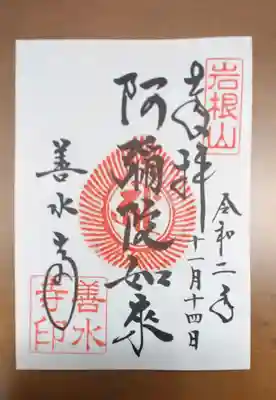 岩根山
奉拝
令和二年
十一月十四日
阿彌陀如来
善水寺
善水寺印